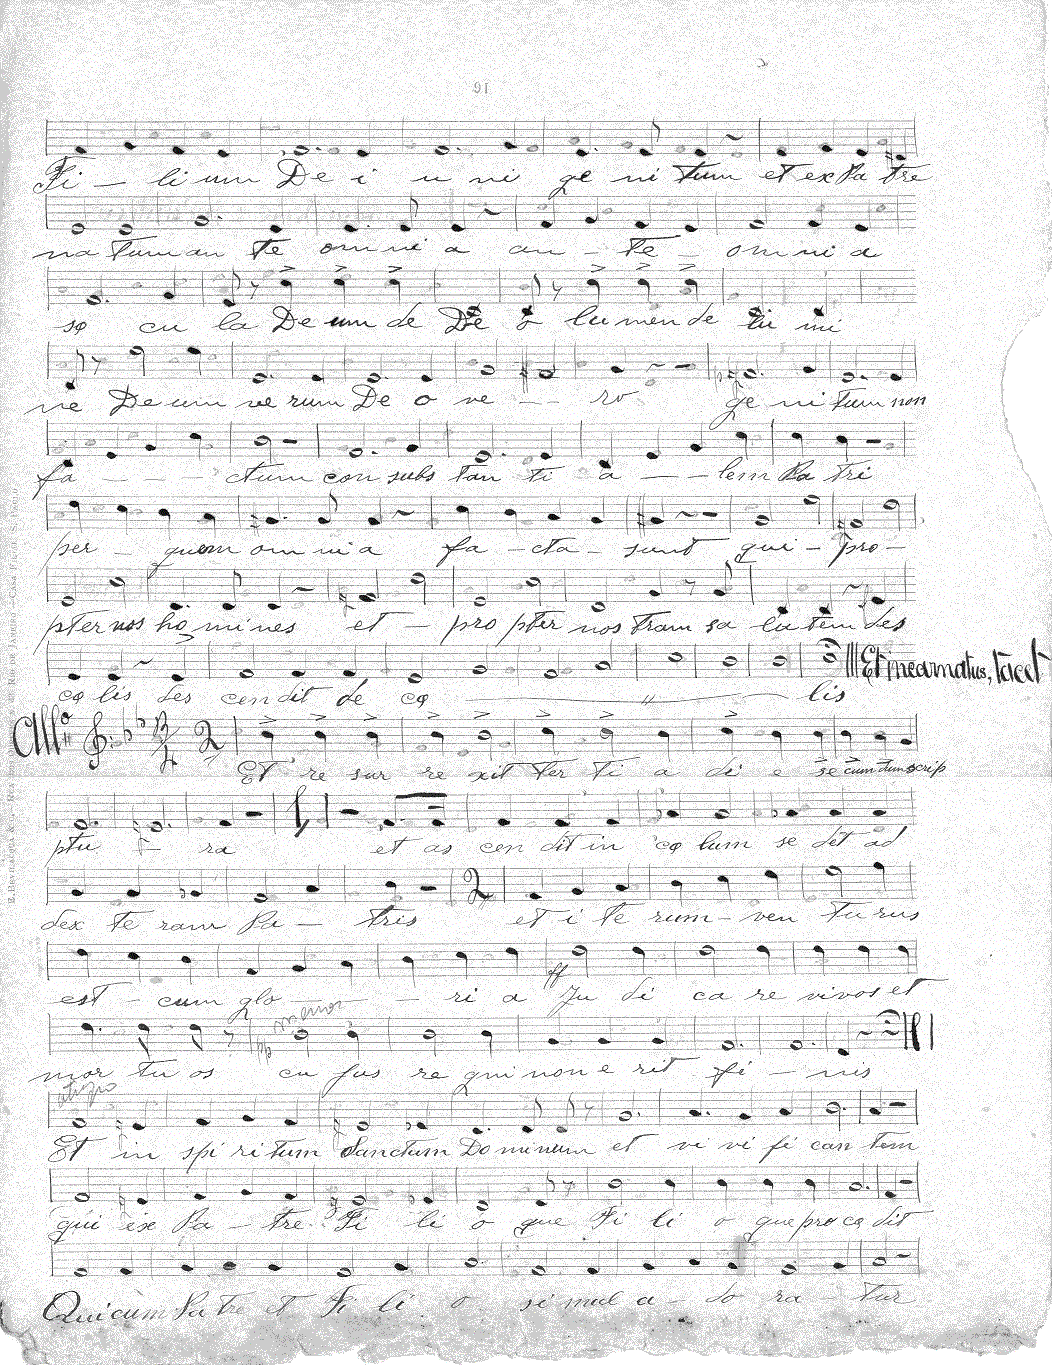 Fi - li um De i u ni ge ni tum et ex Pa tre
na tum an te om ni a an - te - om ni a
sę cu la De um de De o lu men de lu mi
ne De um ve rum De o ve - - ro ge ni tum non
fa - - ctum con subs tan ti a - - lem Pa tri
per - quem om ni a fa - cta - sunt qui - pro -
pter nos ho mi nes et - pro pter nos tram sa lu tem des
cę lis des cen dit de cę lis Et incarnatus, tacet
All.o 2
Et re sur re xit ter ti a di e se cun dum scrip
ptu - ra et as cen dit in cę lum se det ad
dex te ram Pa - tris et i te rum - ven tu rus
2
est - cum glo - - - ri a Ju di ca re vivos et
ff
menor
mor tu os cu jus re gni non e rit fi - nis
pp
Et in spi ri tum Sanctum Do mi num et vi vi fi can tem
qui ex Pa - tre Fi li o que Fi li o que pro cę dit
Qui cum Pa tre et Fi li o si mul a - do ra - tur